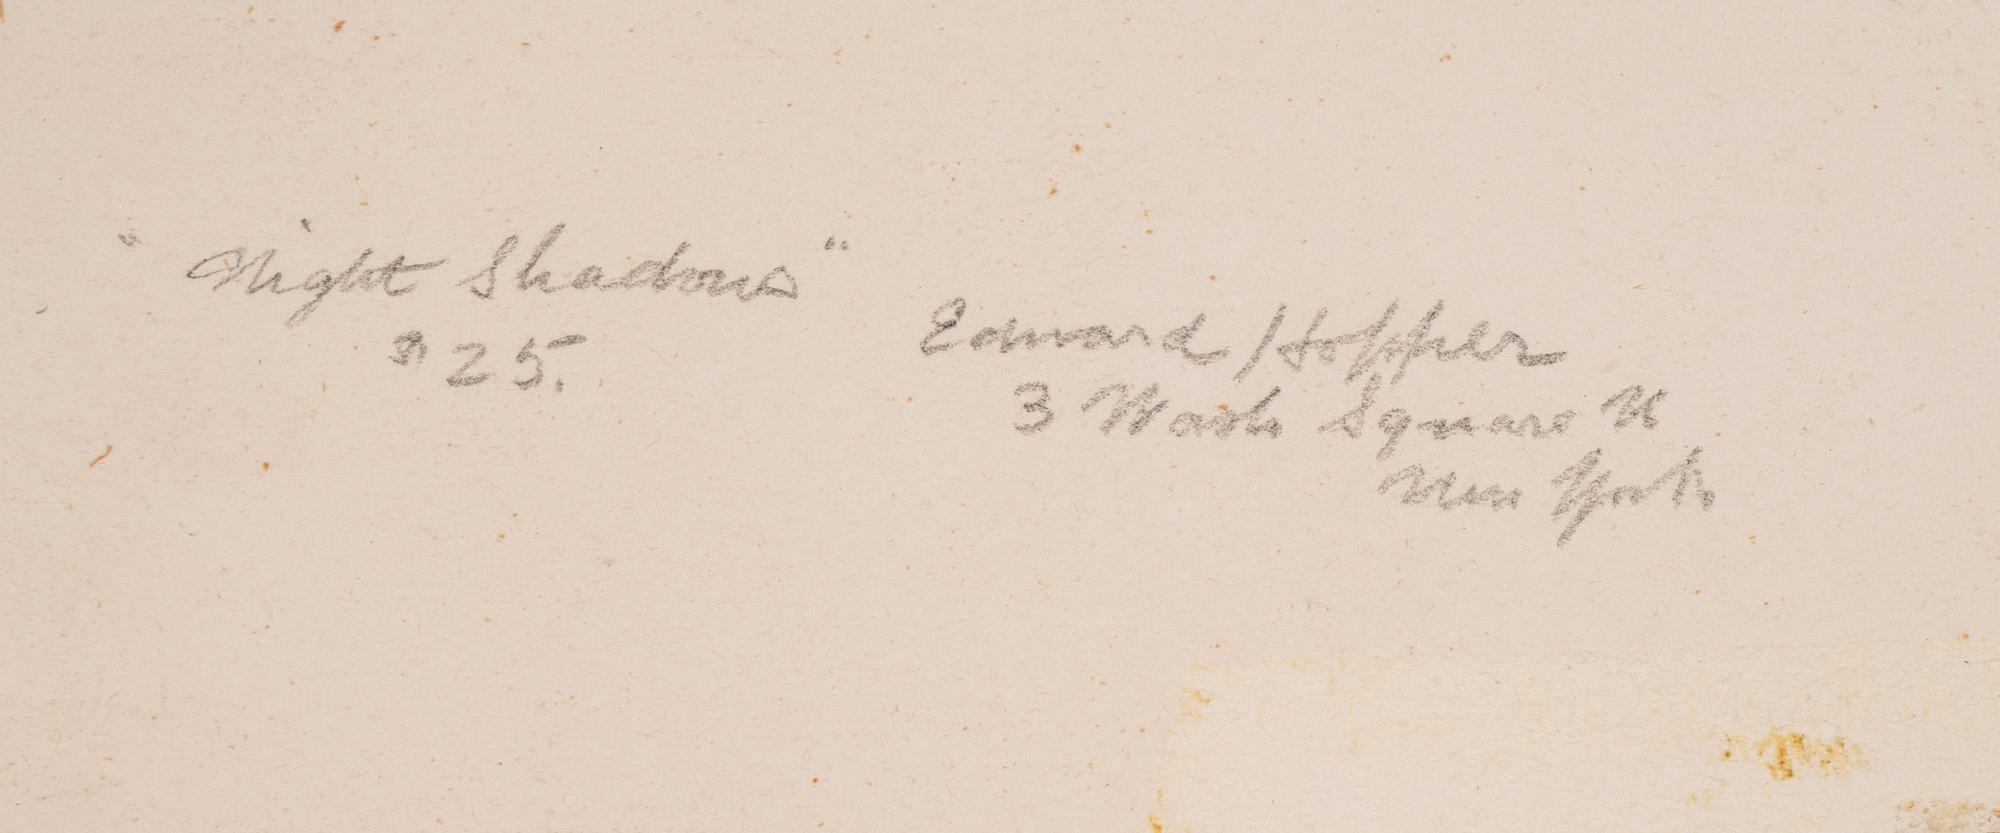 "Night Shadows"
$25.
Edward Hopper
3 Wash Square N
New York